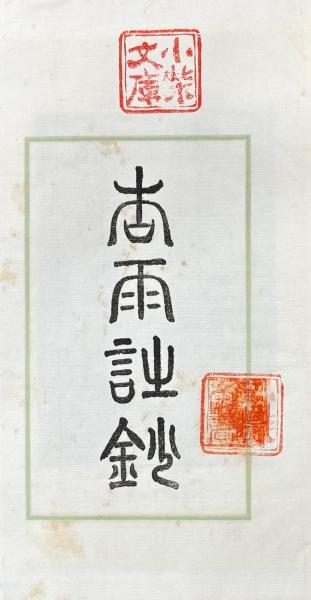 小柴
文庫
杏雨詩鈔